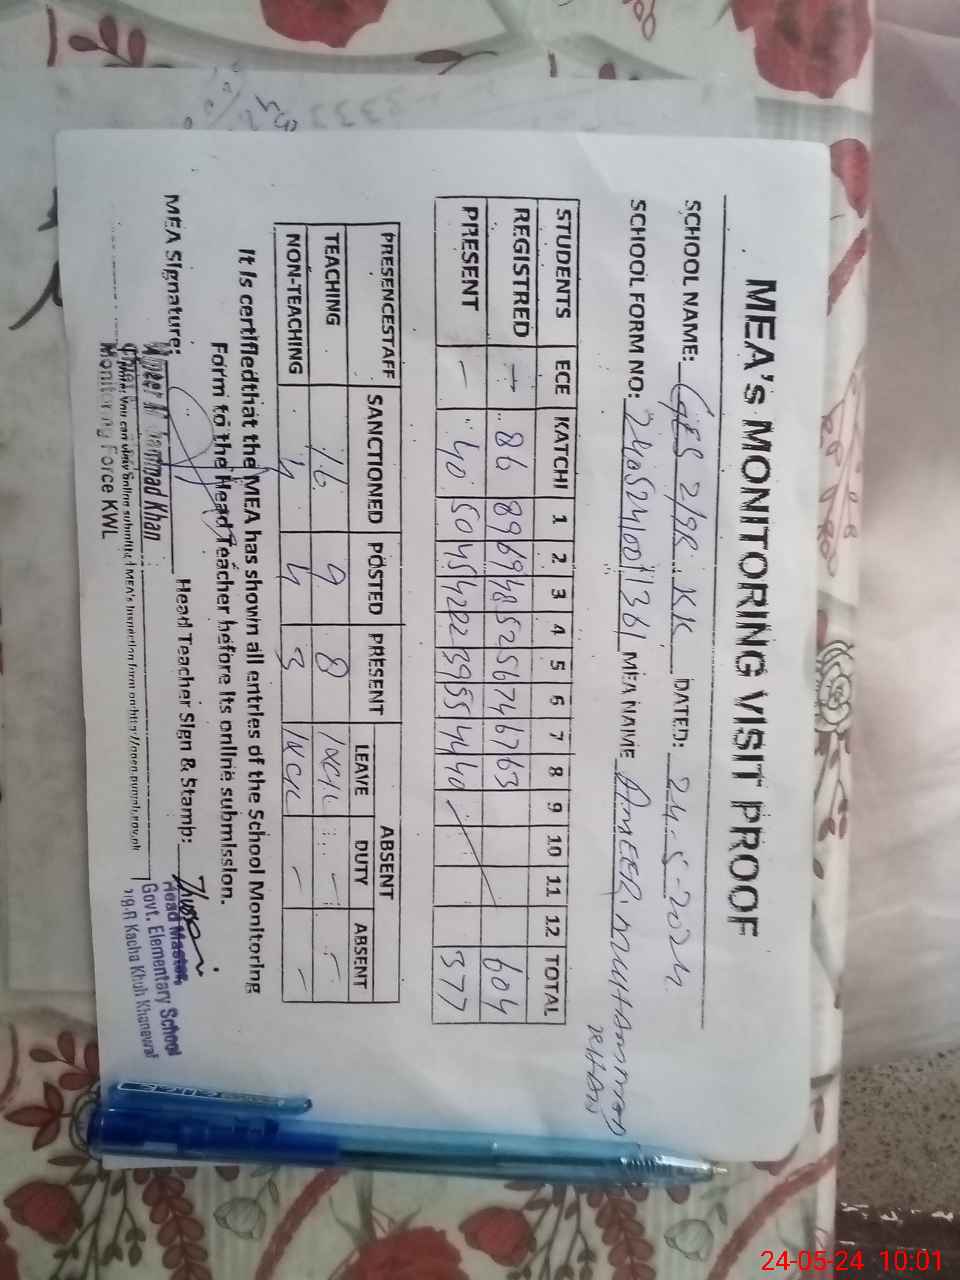 MEA's MONITORING VISIT PROOF
SCHOOL NAME: GES 2/9R KK DATED: 24-5-2024
SCHOOL FORM NO: 24052410011361 MEA NAME AMEER MUHAMMAD KHAN
STUDENTS ECE KATCHI 1 2 3 4 5 6 7 8 9 10 11 12 TOTAL
REGISTRED - 86 89 69 48 52 56 74 67 63 604
PRESENT - 40 50 45 42 22 39 55 44 40 377
PRESENCESTAFF SANCTIONED POSTED PRESENT ABSENT
LEAVE DUTY ABSENT
TEACHING 16 9 8 1xCL - -
NON-TEACHING 4 4 3 1xCL - -
It is certifiedthat the MEA has shown all entries of the School Monitoring
Form to the Head Teacher before its online submission.
MEA Signature: Head Teacher Sign & Stamp:
Ameer Muhammad Khan
You can view online submitted MEA's Inspection form on http://open.punjab.gov.pk
Monitoring Force KWL
Head Master
Govt. Elementary School
2/9-R Kacha Khuh Khanewal
24-05-24 10:01